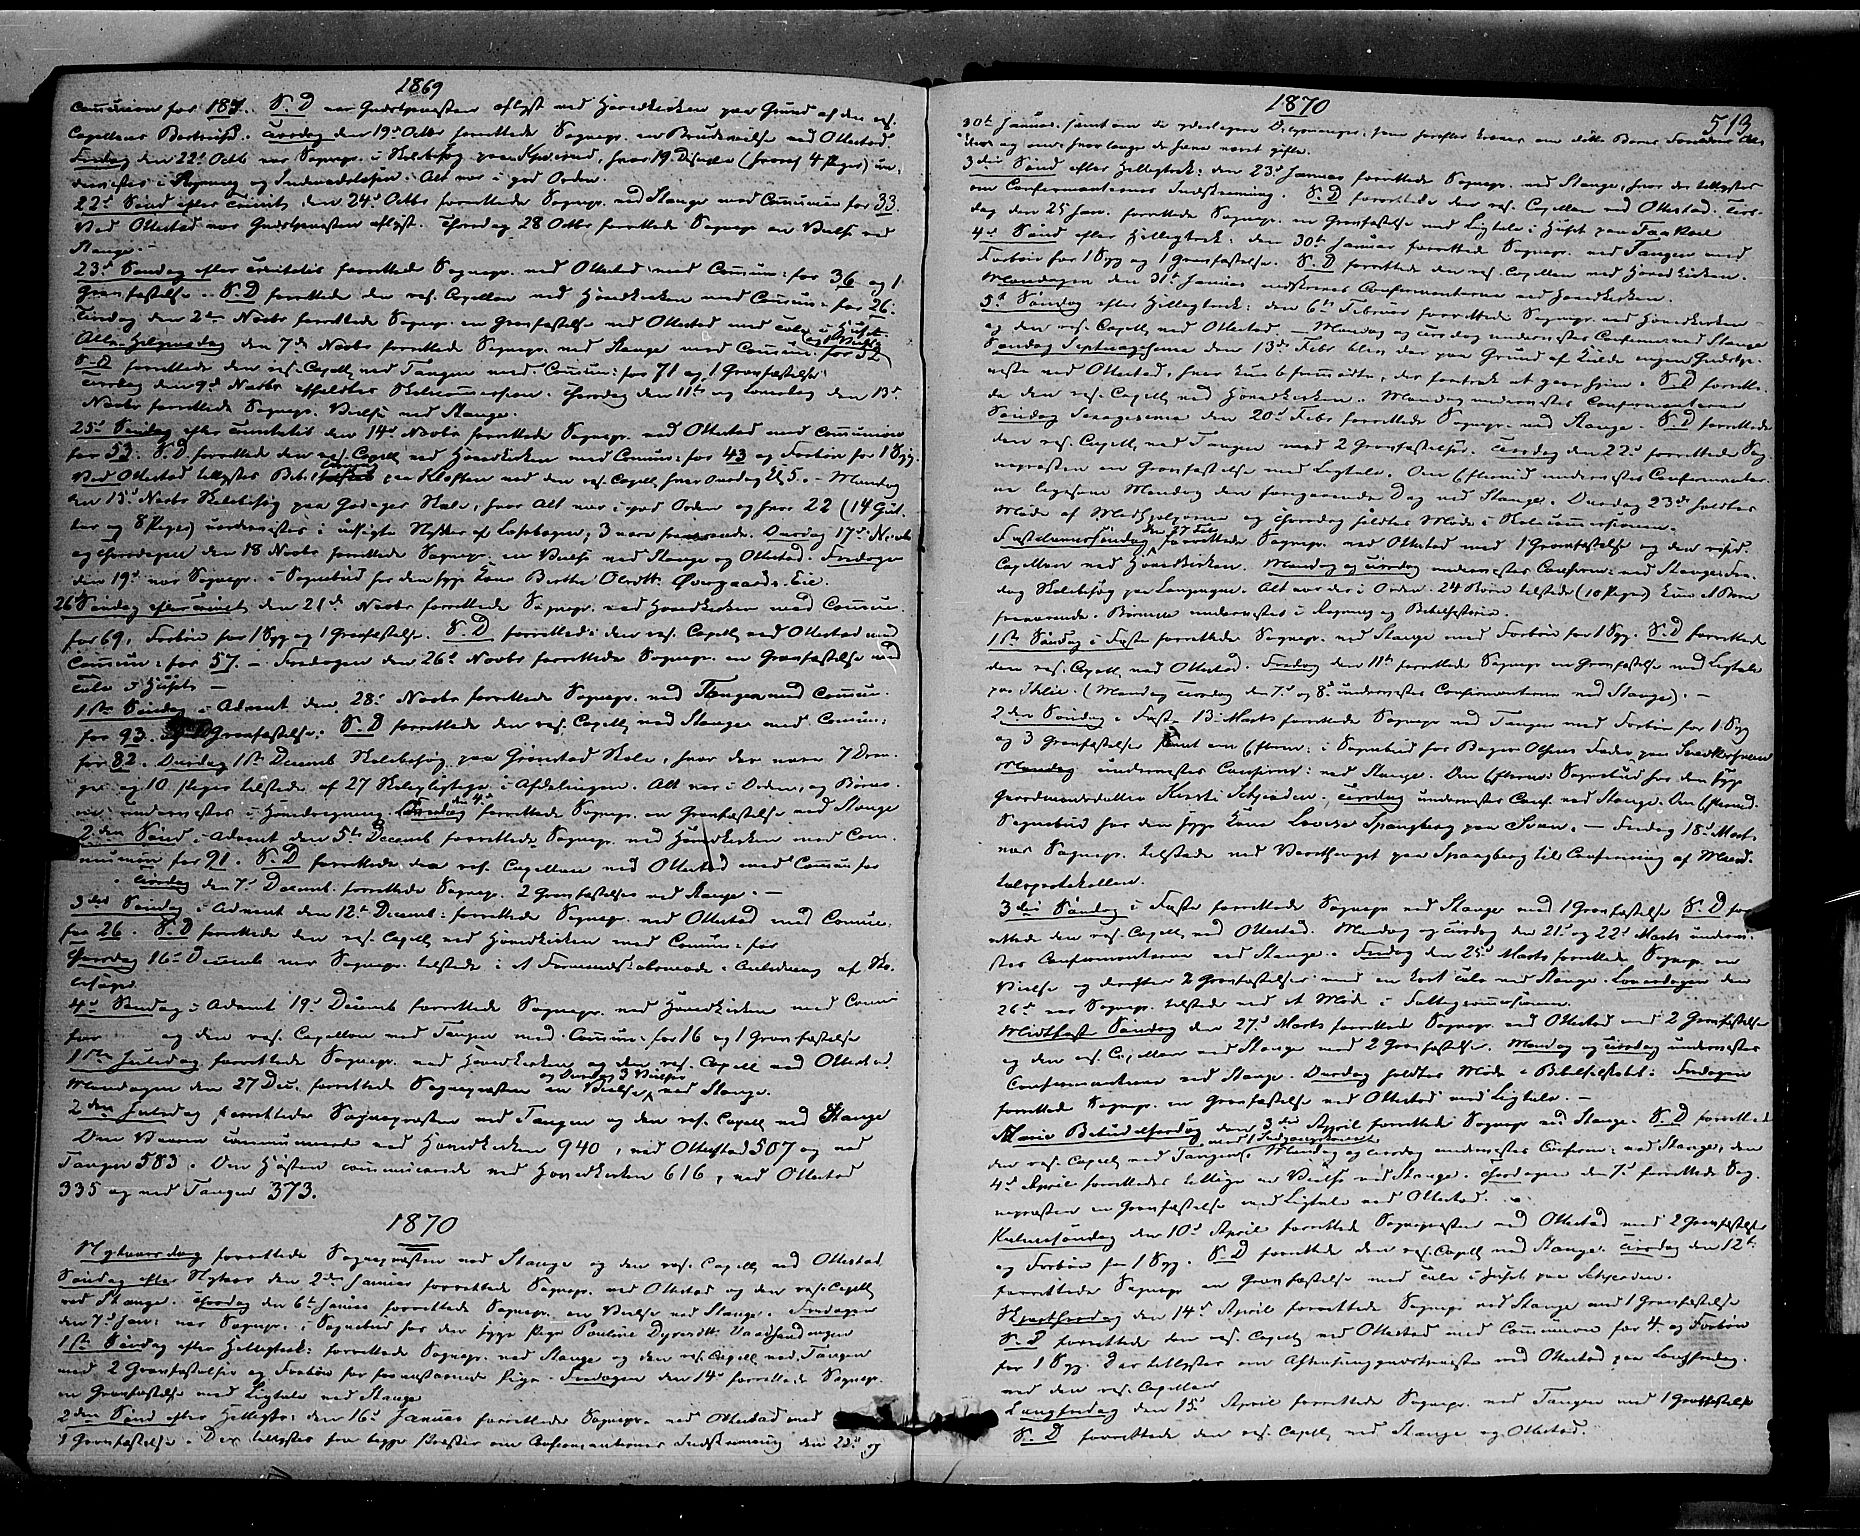 1869
Communion for 187. S. D var Gudstjenesten aflyst ved Hovedkirken paa Grund af den res.
Capellans Bortreise. Tirsdag den 19de Octbr forrettede Sognepr. en Brudevielse ved Ottestad.
Fredag den 22d Octb var Sognepr. i Skolebesøg paa, hvor 19 Disciple (hvoraf 4 Piger) un-
dervistes i Regning og Indenadslæsen. Alt var i god Orden.
22d Sönd efter Trinit. den 24d Octbr forrettede Sognepr. ved Stange med Communion for 33.
Ved Ottestad var Gudstjenesten aflyst. Thorsdag 28 Octbr forrettede Sognepr en Vielse ved
Stange. -
23d Søndag efter Trinitatis forrettede Sognepr. ved Ottestad med Commun: for 36 og 1
Gravfæstelse. S. D forrettede den res. Capellan ved Hovedkirken med Commun: for 26.
Tirsdag den 2den Novbr forrettede Sognepr. en Gravfæstelse ved Ottestad med Tale i Huset.
Alle-Helgensdag den 7de Novbr forrettede Sognepr. ved Stange med Commun: for 52
S. D forrettede den res. Capell. ved Tangen med Commun: for 71 og 1 Gravfæstelse.
Tirsdag den 9d Novbr afholdtes Skolecommission. Thorsdag den 11te og Løverdag den 13d
Novbr forrettede Sognepr. Vielse ved Stange.
25d Søndag efter Trinitatis den 14d Novbr forrettede Sognepr. ved Ottestad med Communion
for 53. S. D forrettede den res. Capell. ved Hovedkirken med Commun: for 43 og Forbøn for 1 Syg.
Ved Ottestad tillystes Bibel paa Kloften ved den res. Capell. hver Onsdag Kl 5. - Mandag
den 15d Novbr Skolebesøg paa Skole, hvor Alt var i god Orden og hvor 22 (14 Gut-
ter og 8 Piger) undervistes i udvigte Stykker af Læsebogen; 3 vare fraværende. Onsdag 17d Novbr
og Thorsdagen den 18 Novbr forrettede Sognepr. en Vielse ved Stange og Ottestad. Fredagen
den 19d var Sognepr. i Sognebud hos den syge Kone Berthe Olsdtr. Øvergaards Eie.
26d Søndag efter Trinit. den 21de Novbr forrettede Sognepr. ved Hovedkirken med Commun.
for 69, Forbøn for 1 Syg og 1 Gravfæstelse. S. D forrettede den res. Capell. ved Ottestad med
Commun: for 57. - Fredagen den 26d Novbr forrettede Sognepr. en Gravfæstelse med
Tale i Huset -
1ste Søndag i Advent den 28d Novbr forrettede Sognepr. ved Tangen med Commun.
for 93. Gravfæstelse. S. D forrettede den res. Capell. ved Stange med Commun:
for 82. Onsdag 1ste Decemb Skolebesøg paa Grønstad Skole, hvor der vare 7 Dren-
ge og 10 Piger tilstede af 27 Skolepligtige i Afdelingen. Alt var i Orden, og Børne-
ne undervistes i Hovedregning. Løverdag den 4d forrettede Sognepr. en Gravfæstelse ved Stange
2den Sönd i Advent den 5te Decemb forrettede Sognepr. ved Hovedkirken med Com-
munion for 91. S. D forrettede den res. Capellan ved Ottestad med Commun: for
Tirsdag den 7d Decemb. forrettede Sognepr. 2 Gravfæstelser ved Stange. -
3die Søndag i Advent den 12te Decemb: forrettede Sognepr. ved Ottestad med Commun.
for 26. S. D forrettede den res. Capell. ved Hovedkirken med Commun: for
Thorsdag 16de Decemb var Sognepr. tilstede i et Formandskabsmøde i Anledning af Sko-
lesager.
4de Søndag i Advent 19d Decemb forrettede Sognepr. ved Hovedkirken med Comm:
for og den res. Capellan ved Tangen med Commun: for 16 og 1 Gravfæstelse
1ste Juledag forrettede Sognepr. ved Hovedkirken og den res. Capell. ved Ottestad.
Mandagen den 27 Dec. forrettede Sognepræsten en Vielse og Tirsdag 3 Vielser ved Stange.
2den Juledag forrettede Sognepræsten ved Tangen og den res. Capell. ved Stange
Om Vaaren communicerede ved Hovedkirken 940, ved Ottestad 507 og ved
Tangen 583. Om Høsten communicerede ved Hovedkirken 616, ved Ottestad
335 og ved Tangen 373.
1870
Nytaarsdag forrettede Sognepræsten ved Stange og den res. Capell. ved Ottestad.
Søndag efter Nytaar den 2den Januar forrettede Sognepr. ved Ottestad og den res. Capell.
ved Stange. Thorsdag den 6te Januar forrettede Sognepr. en Vielse ved Stange. Fredagen
den 7d Jan: var Sognepr. i Sognebud hos den syge Pige Pauline
1ste Søndag efter Helligtrek: forrettede Sognepr. ved Stange og den res. Capell. ved Tangen
med 2 Gravfæstelser og Forbøn for fornævnte Pige. Fredagen den 14d forrettede Sognepr.
en Gravfæstelse med Ligtale ved Stange
2den Sønd efter Helligtr: den 16d Januar forrettede Sognepr. ved Ottestad med
1 Gravfæstelse. Der tillystes fra begge Præster om Confirmanternes Indskrivning den 25d og
1870
513
30te Januar, samt om de yderligere Oplysninger, som herefter kræves om døbte Børns Forældres
og om: hvorlænge de have været gifte.
3die Sønd efter Helligtrek: den 23d Januar forrettede Sognepr. ved Stange, hvor der tillystes
om Confirmanternes Indskrivning. S. D forrettede den res. Capellan ved Ottestad. Tirs-
dag den 25 Jan. forrettede Sognepr. en Gravfæstelse med Ligtale i Huset paa
4d Sönd efter Helligtrek: den 30te Januar forrettede Sognepr. ved Tangen med
Forbøn for 1 Syg og 1 Gravfæstelse. S. D forrettede den res. Capellan ved Hovedkirken.
Mandagen den 31te Januar indskreves Confirmanterne ved Hovedkirken.
5d Søndag efter Helligtrek: den 6te Februar forrettede Sognepr. ved Hovedkirken
og den res. Capell. ved Ottestad. - Mandag og Tirsdag undervistes Confirm. ved Stange
Søndag Septuagesima den 13de Febr blev der paa Grund af Kulde ingen Gudstje-
neste ved Ottestad, hvor kun 6 fremmødte, der foretrak at gaae hjem. S. D forrette-
de den res. Capell. ved Hovedkirken. Mandag undervistes Confirmanterne
Søndag Sexagesima den 20d Febr forrettede Sognepr. ved Stange. S. D forrettede
den res. Capell. ved Tangen med 2 Gravfæstelser. Tirsdag den 22d forrettede Sog-
nepræsten en Gravfæstelse med Ligtale. Om Efterm. undervistes Confirmanter-
ne ligesom Mandag den foregaaende Dag ved Stange. Onsdag 23de holdtes
Møde af Medhjelperne og Thorsdag holdtes Møde i Skolecommissionen.
Fastelavnssøndag den 27 Feb forrettede Sognepr. ved Ottestad med 1 Gravfæstelse og den resid.
Capellan ved Hovedkirken. Mandag og Tirsdag undervistes Confirm: ved Stange. Fre-
dag Skolebesøg paa. Alt var der i Orden. 24 Børn tilstede (10 Piger) kun 1 Barn
fraværende. Børnene undervistes i Regning og Bibelhistorie.
1ste Søndag i Faste forrettede Sognepr. ved Stange med Forbøn for 1 Syg. S. D forrettede
den res. Capell. ved Ottestad. Fredag den 11te forrettede Sognepr en Gravfæstelse med Ligtale
paa. (Mandag Tirsdag den 7d og 8d undervistes Confirmanterne ved Stange). -
2den Søndag i Faste 13 Marts forrettede Sognepr ved Tangen med Forbøn for 1 Syg
og 3 Gravfæstelser samt om Efterm: i Sognebud hos Olsens Fader paa
Mandag undervistes Confirm: ved Stange. Om Efterm: Sognebud hos den syge
Gaardmandsdatter Kersti. Tirsdag undervistes Conf. ved Stange. Om Efterm.
Sognebud hos den syge Kone Lovise Spangberg paa Svæn. - Fredag 18d Marts
var Sognepr. tilstede ved paa Spangberg til Conferering af Mand-
talsprotokollen.
3die Søndag i Faste forrettede Sognepr ved Stange med 1 Gravfæstelse S. D for-
rettede den res. Capell. ved Ottestad. Mandag og Tirsdag den 21d og 22d Marts undervi-
stes Confirmanterne ved Stange. Fredag den 25d Marts forrettede Sognepr. en
Vielse og derefter 2 Gravfæstelser med en kort Tale ved Stange. Løverdagen den
26d var Sognepr. tilstede ved et Møde i Fattigcommissionen.
Midfaste Søndag den 27d Marts forrettede Sognepr. ved Ottestad med 2 Gravfæstelser
og den res. Capellan ved Stange med 2 Gravfæstelse. Mandag og Tirsdag undervistes
Confirmanterne ved Stange. Onsdag holdtes Møde i Bibelselskabet: Fredagen
forrettede Sognepr. en Gravfæstelse ved Ottestad med Ligtale. -
Mariæ Bebudelsesdag den 3die April forrettede Sognepr ved Stange. S. D forrettede
den res. Capell. ved Tangen med 1 Indgangskone. Mandag og Tirsdag undervistes Confirm: ved Stange; den
4d April forrettedes tillige en Vielse ved Stange. Thorsdagen den 7d forrettede Sog-
nepræsten en Gravfæstelse med Ligtale ved Ottestad.
Palmesøndag den 10d April forrettede Sognepræsten ved Ottestad med 2 Gravfæstelser
og Forbøn for 1 Syg. S. D forrettede den res. Capell. ved Stange. Tirsdag den 12te
forrettede Sognepr en Gravfæstelse med Tale i Huset paa
Skjærthorsdag den 14d April forrettede Sognepr. ved Stange med 1 Gravfæstelse
S. D forrettede den res. Capell. ved Ottestad med Communion for 4. og Forbøn
for 1 Syg. Der tillystes om Aftensangsgudstjeneste ved Ottestad paa Langfredag
ved den res. Capellan
Langfredag den 15d April forrettede Sognepr. ved Tangen med 1 Gravfæstelse
S. D forrettede den res. Capell. ved Stange og Ottestad.